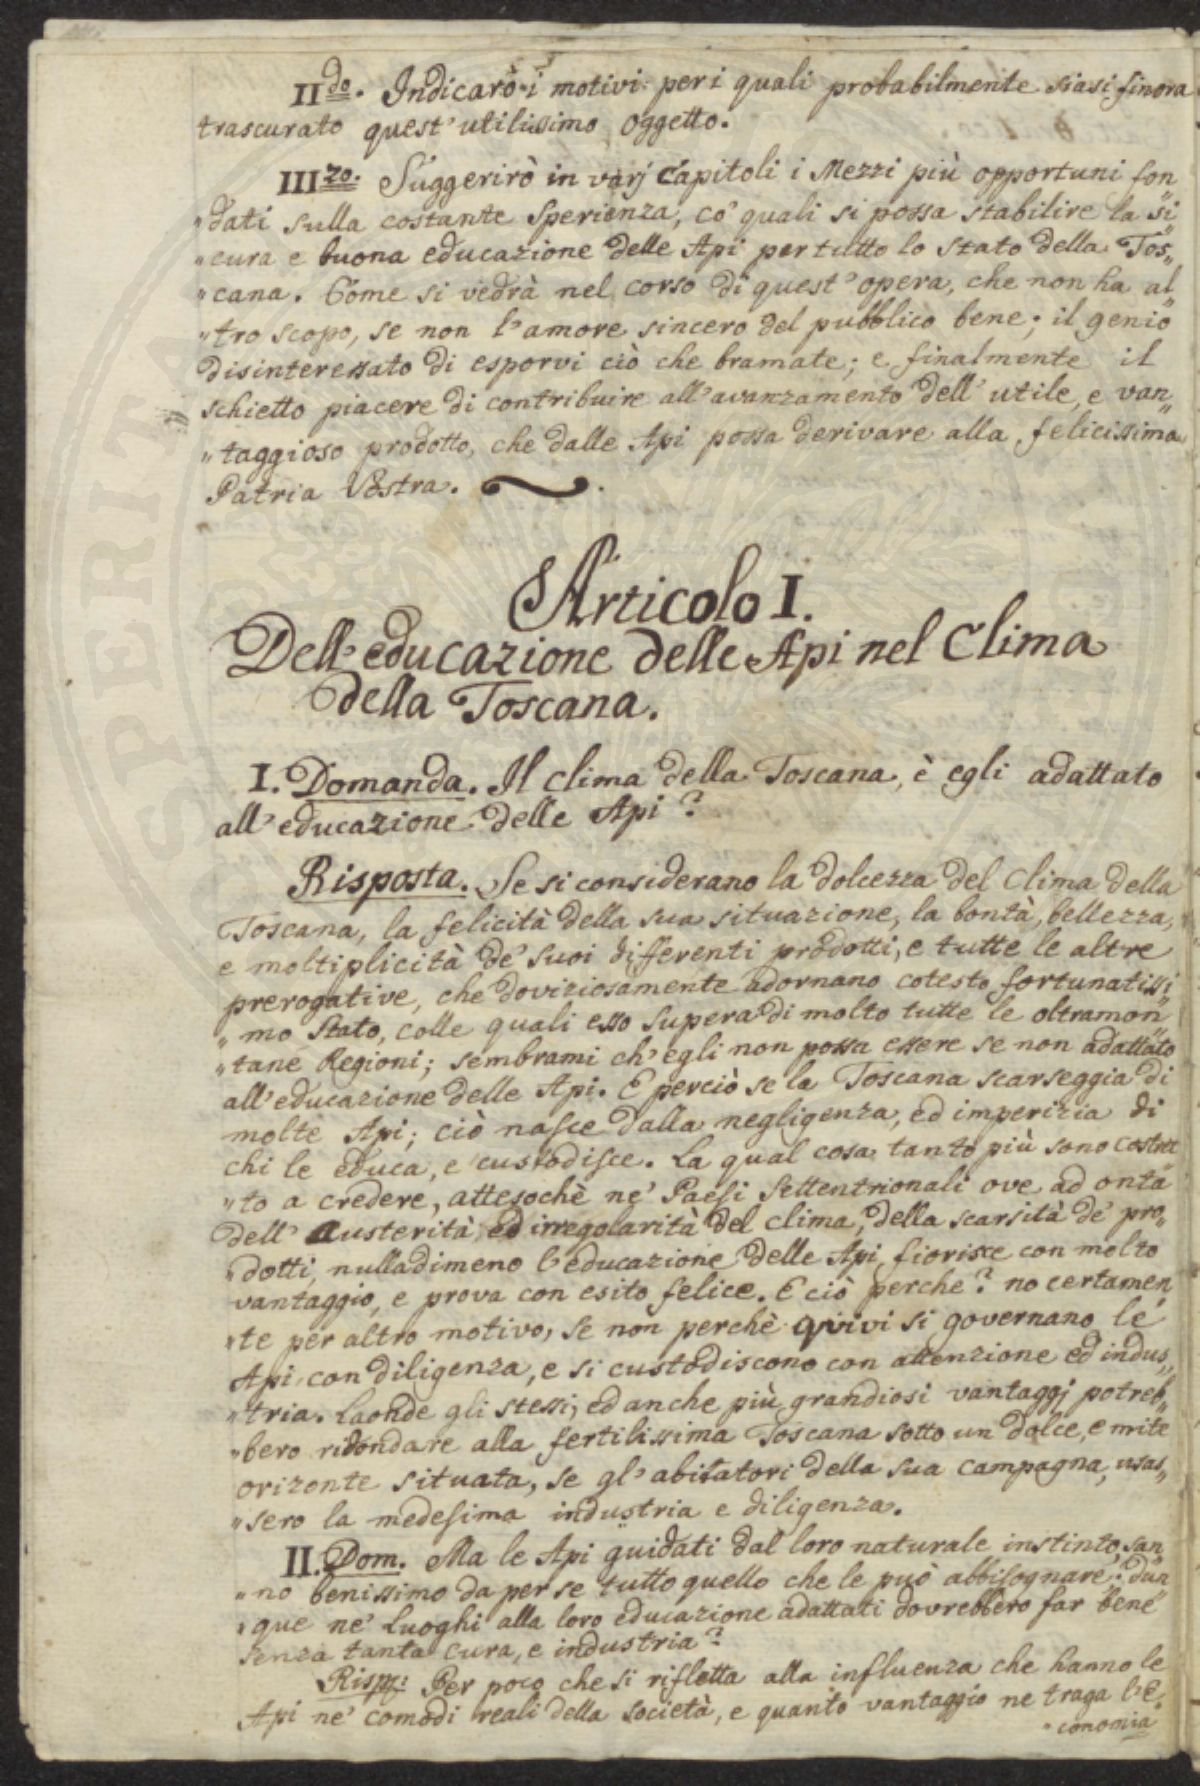 IIdo. Indicarò i motivi per i quali probabilmente siasi finora
trascurato quest'utilissimo oggetto.
IIIzo. Suggerirò in varj Capitoli i Mezzi più opportuni fon
„dati sulla costante Sperienza, co' quali si possa stabilire la si
„cura e buona educazione delle Api per tutto lo stato della Tos„
„cana. Come si vedrà nel corso di quest'opera, che non ha al
„tro scopo, se non l'amore sincero del pubblico bene; il genio
disinteressato di esporvi ciò che bramate; e finalmente il
schietto piacere di contribuire all'avanzamento dell'utile, e van„
„taggioso prodotto, che dalle Api possa derivare alla felicissima
Patria Vostra.
Articolo I.
Dell'educazione delle Api nel Clima
della Toscana.
I. Domanda. Il clima della Toscana, è egli adattato
all'educazione delle Api?
Risposta. Se si considerano la dolcezza del Clima della
Toscana, la felicità della sua situazione, la bontà, bellezza,
e moltiplicità de' suoi differenti prodotti, e tutte le altre
prerogative, che doviziosamente adornano cotesto fortunatissi
„mo Stato, colle quali esso supera di molto tutte le oltramon
„tane Regioni; sembrami ch'egli non possa essere se non adattato
all'educazione delle Api. E perciò se la Toscana scarseggia di
molte Api; ciò nasce dalla negligenza, ed imperizia di
chi le educa, e custodisce. La qual cosa tanto più sono costret
„to a credere, attesochè ne' Paesi Settentrionali ove ad onta
dell'Austerità, ed irregolarità del clima, della scarsità de' pro„
„dotti, nulladimeno l'educazione delle Api fiorisce con molto
vantaggio, e prova con esito felice. E ciò perche? no certamen
„te per altro motivo, se non perchè quivi si governano le
Api con diligenza, e si custodiscono con attenzione ed indus„
„tria. Laonde gli stessi, ed anche più grandiosi vantaggj potreb„
„bero ridondare alla fertilissima Toscana sotto un dolce, e mite
orizonte situata, se gl'abitatori della sua campagna, usas„
„sero la medesima industria e diligenza.
II. Dom. Ma le Api guidati dal loro naturale instinto, san
„no benissimo da per se tutto quello che le può abbisognare: dun
„que ne' Luoghi alla loro educazione adattati dovrebbero far bene
senza tanta cura, e industria?
Risp: Per poco che si rifletta alla influenza che hanno le
Api ne' comodi reali della società, e quanto vantaggio ne traga l'e„
„conomia